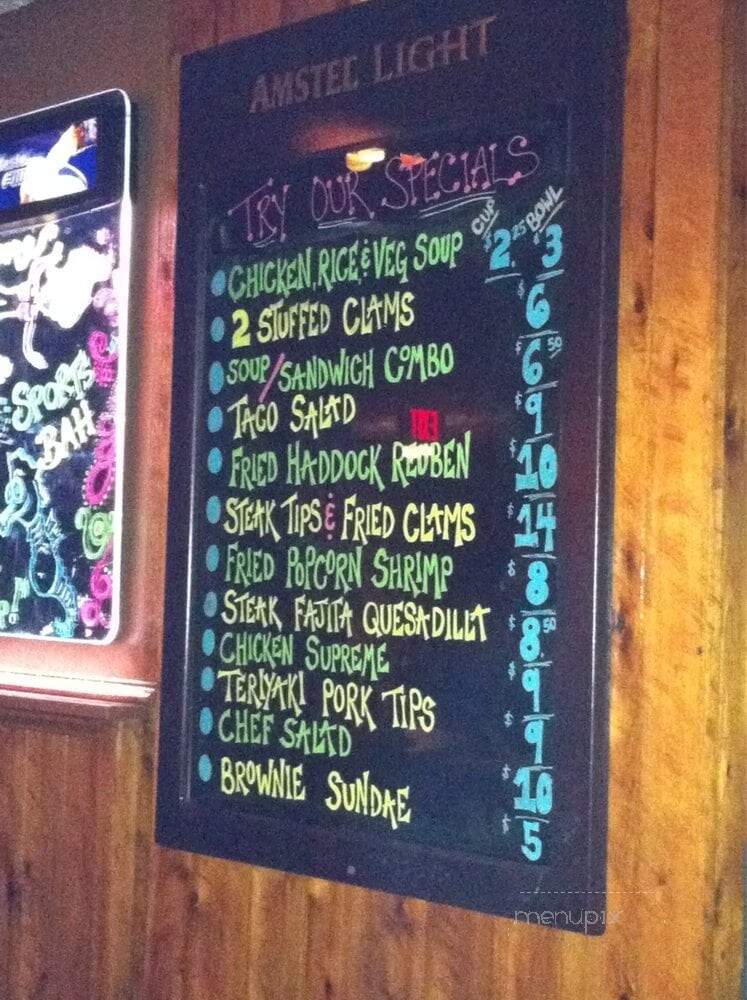 AMSTEL LIGHT
TRY OUR SPECIALS
CUP BOWL
CHICKEN, RICE & VEG SOUP $2.25 $3
2 STUFFED CLAMS $6
SOUP/SANDWICH COMBO $6.50
TACO SALAD $9
FRIED HADDOCK REUBEN $10
STEAK TIPS & FRIED CLAMS $14
FRIED POPCORN SHRIMP $8
STEAK FAJITA QUESADILLA $8.50
CHICKEN SUPREME $9
TERIYAKI PORK TIPS $9
CHEF SALAD $10
BROWNIE SUNDAE $5
SPORTS
BAH
menupix